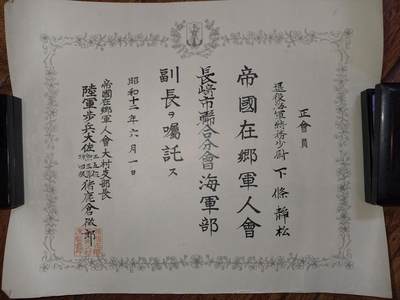 正會員
退役海軍特務少尉 下條靜松
帝國在郷軍人會
長崎市聯合分會海軍部
副長ヲ囑託ス
昭和十二年六月一日
帝國在郷軍人會大村支部長
陸軍歩兵大佐
猪鹿倉徹郎